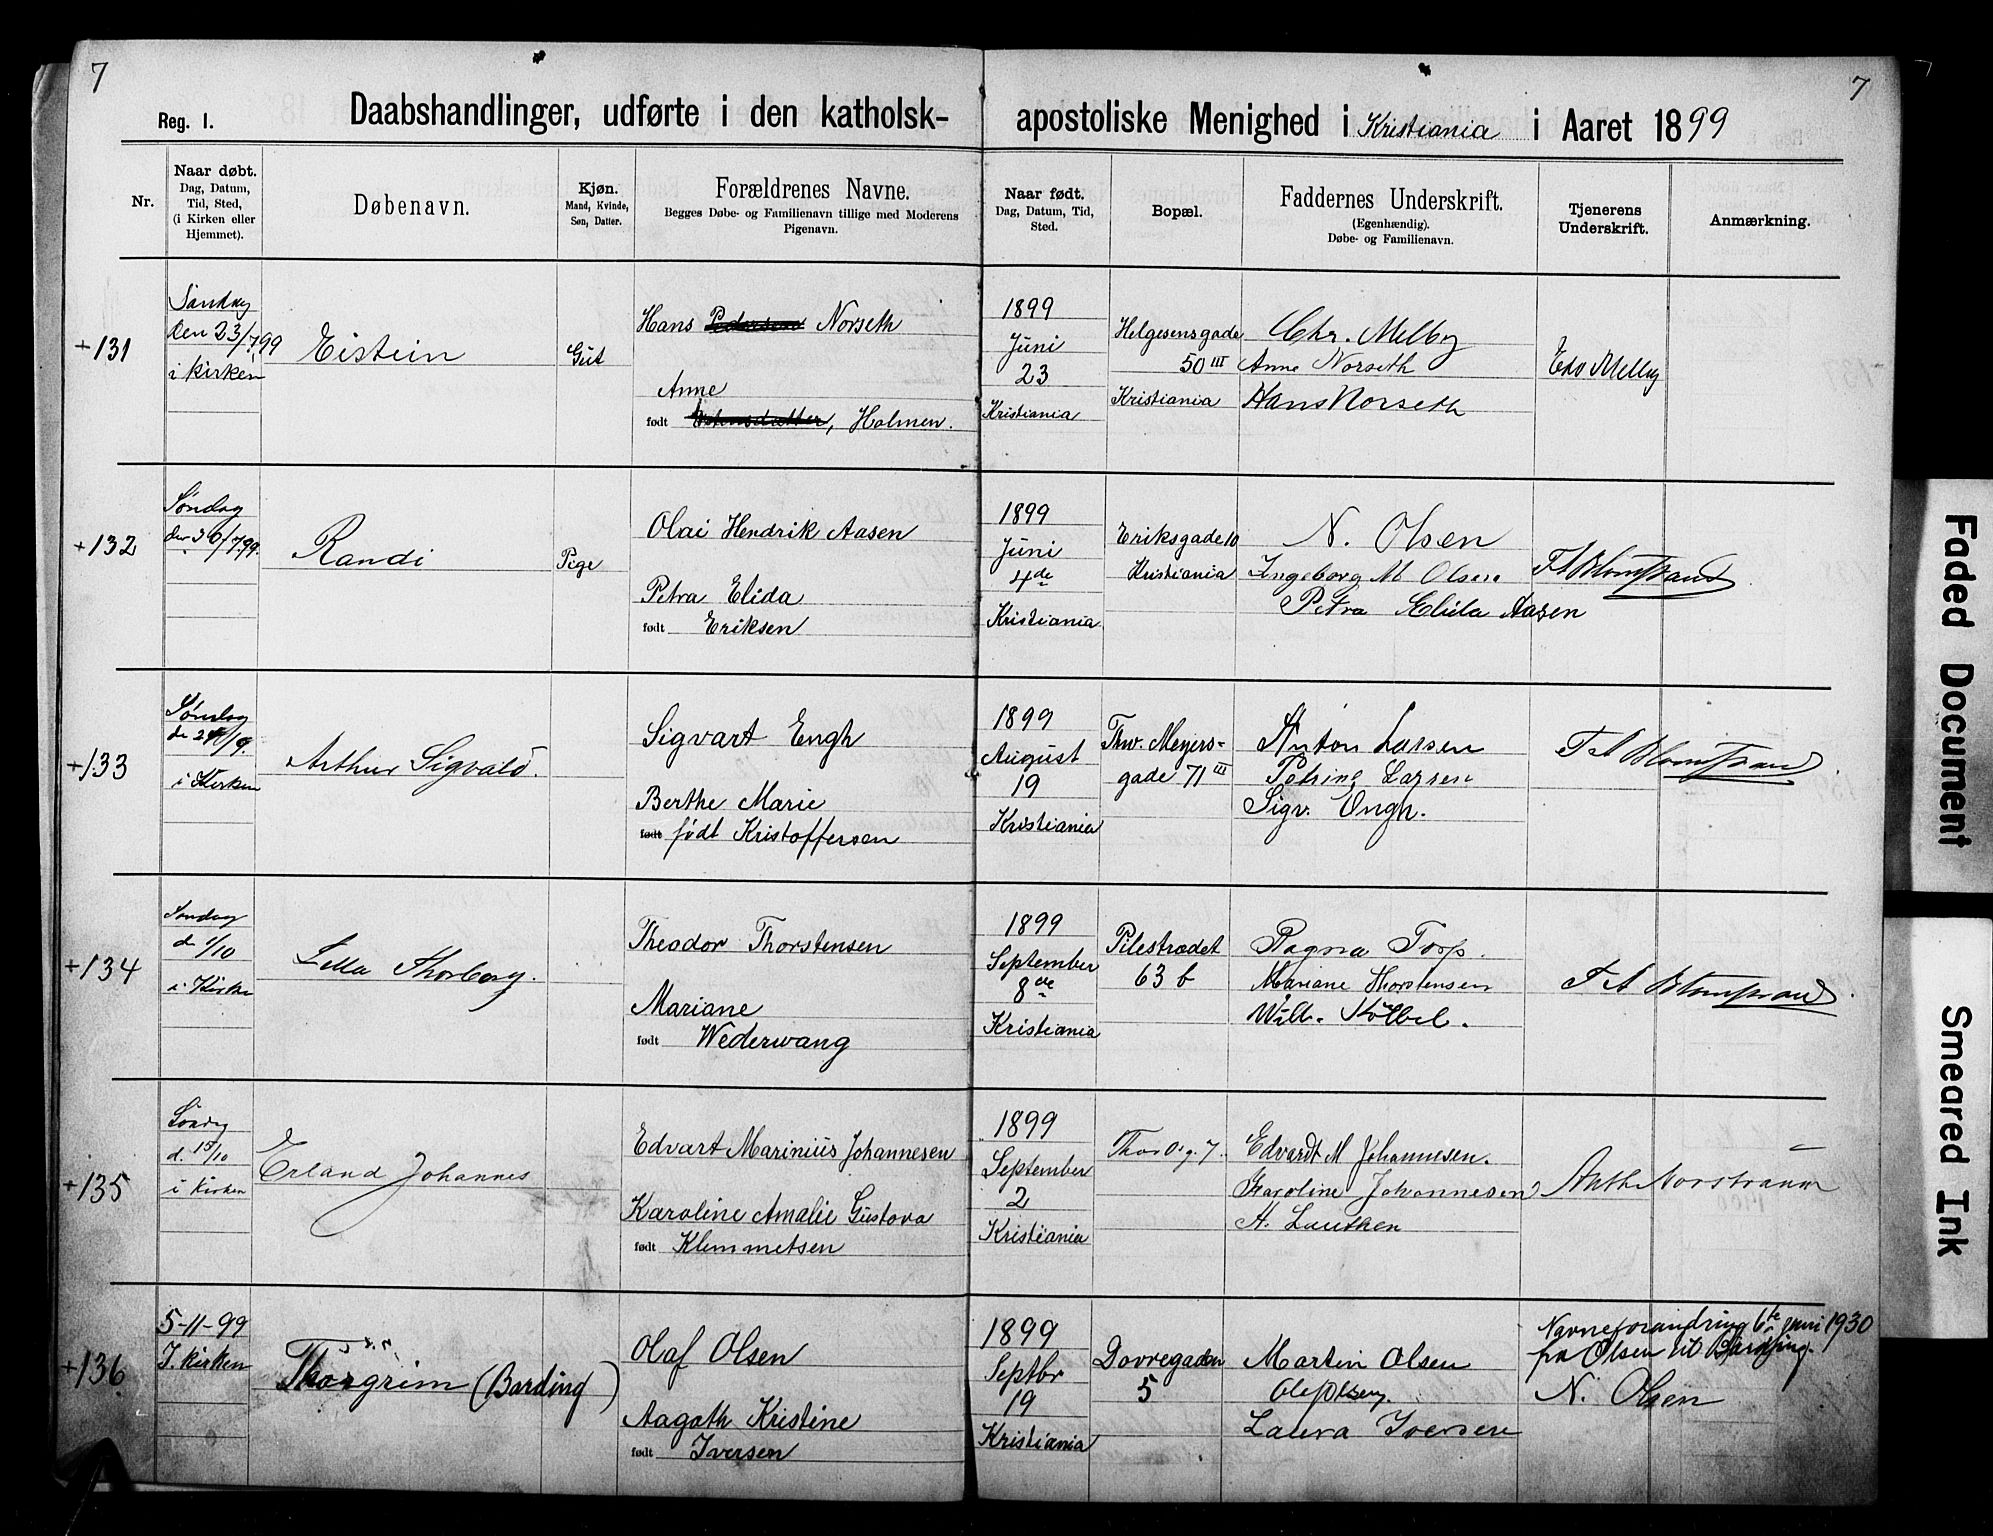 7
7
Reg. 1. Daabshandlinger, udførte i den katholsk- apostoliske Menighed i Kristiania i Aaret 1899
Nr.
Naar døbt.
Dag, Datum,
Tid, Sted,
(i Kirken eller
Hjemmet).
Døbenavn.
Kjøn.
Mand, Kvinde,
Søn, Datter.
Forældrenes Navne.
Begges Døbe- og Familienavn tillige med Moderens
Pigenavn.
Naar født.
Dag, Datum, Tid,
Sted.
Bopæl.
Faddernes Underskrift.
(Egenhændig).
Døbe- og Familienavn.
Tjenerens
Underskrift.
Anmærkning.
+131
Søndag
den 23/7.99
i Kirken
Eistein
Gut
Hans Pedersen Norseth
Anne
født Holmen.
1899
Juni
23
Kristiania
Helgesensgade
50 III
Kristiania
Chr. Melby
Anne Norseth
Hans Norseth
Edv Melby
+132
Søndag
den 30/7.99.
Randi
Pige
Olai Hendrik Aasen
Petra Elida
født Eriksen
1899
Juni
4de
Kristiania.
Eriksgade 10
Kristiania
N. Olsen
Ingeborg M Olsen
Petra Elida Aasen
F A Blomstrand
+133
Søndag
i Kirken
Arthur Sigvald.
Sigvart Engh
Berthe Marie
født født Kristoffersen
1899
August
19
Kristiania
Thv. Meyers-
gade 71 III
Anton Larsen
Petrine Larsen
Sigv. Engh.
F A Blomstrand
+134
Søndag
d. 1/10
i Kirken
Lilla Thorborg.
Theodor Thorstensen
Mariane
født Wederwang
1899
September
8de
Kristiania
Pilestrædet
63 b
Ragna Torp.
Mariane Thorstensen
Wilh. Kölbel.
F A Blomstrand
+135
Søndag
d. 15/10
i Kirken
Erland Johannes
Edvart Marinius Johannesen
Karoline Amalie Gustova
født Klemmetsen
1899
September
2
Kristiania
Thor O. g. 7.
Edvardt M Johannesen.
Karoline Johannesen
A. Lauthen
Anth Norstrand
+136
5-11-99
I. Kirken
Thorgrim (Barding)
Olaf Olsen
Aagoth Kristine
født Iversen
1899
Septbr
19
Kristiania
Dovregaden
5
Martin Olsen
Ole Olsen.
Laura Iversen
Navneforandring 6te juni 1930
fra Olsen til Barding.
N. Olsen
Faded Document
Smeared Ink